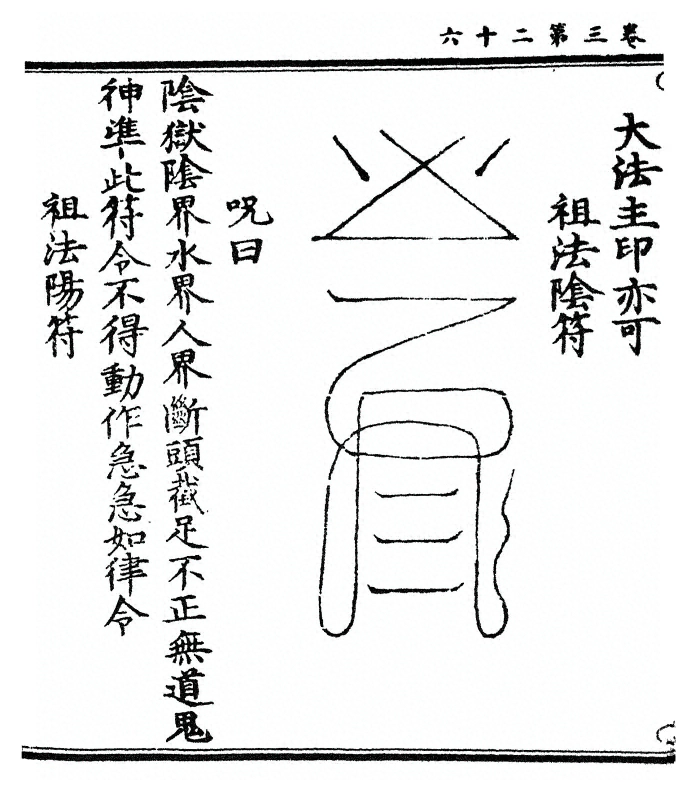 卷三第二十六
大法主印亦可
祖法陰符
咒曰
陰獄陰界水界人界斷頭截足不正無道鬼
神準此符令不得動作急急如律令
祖法陽符